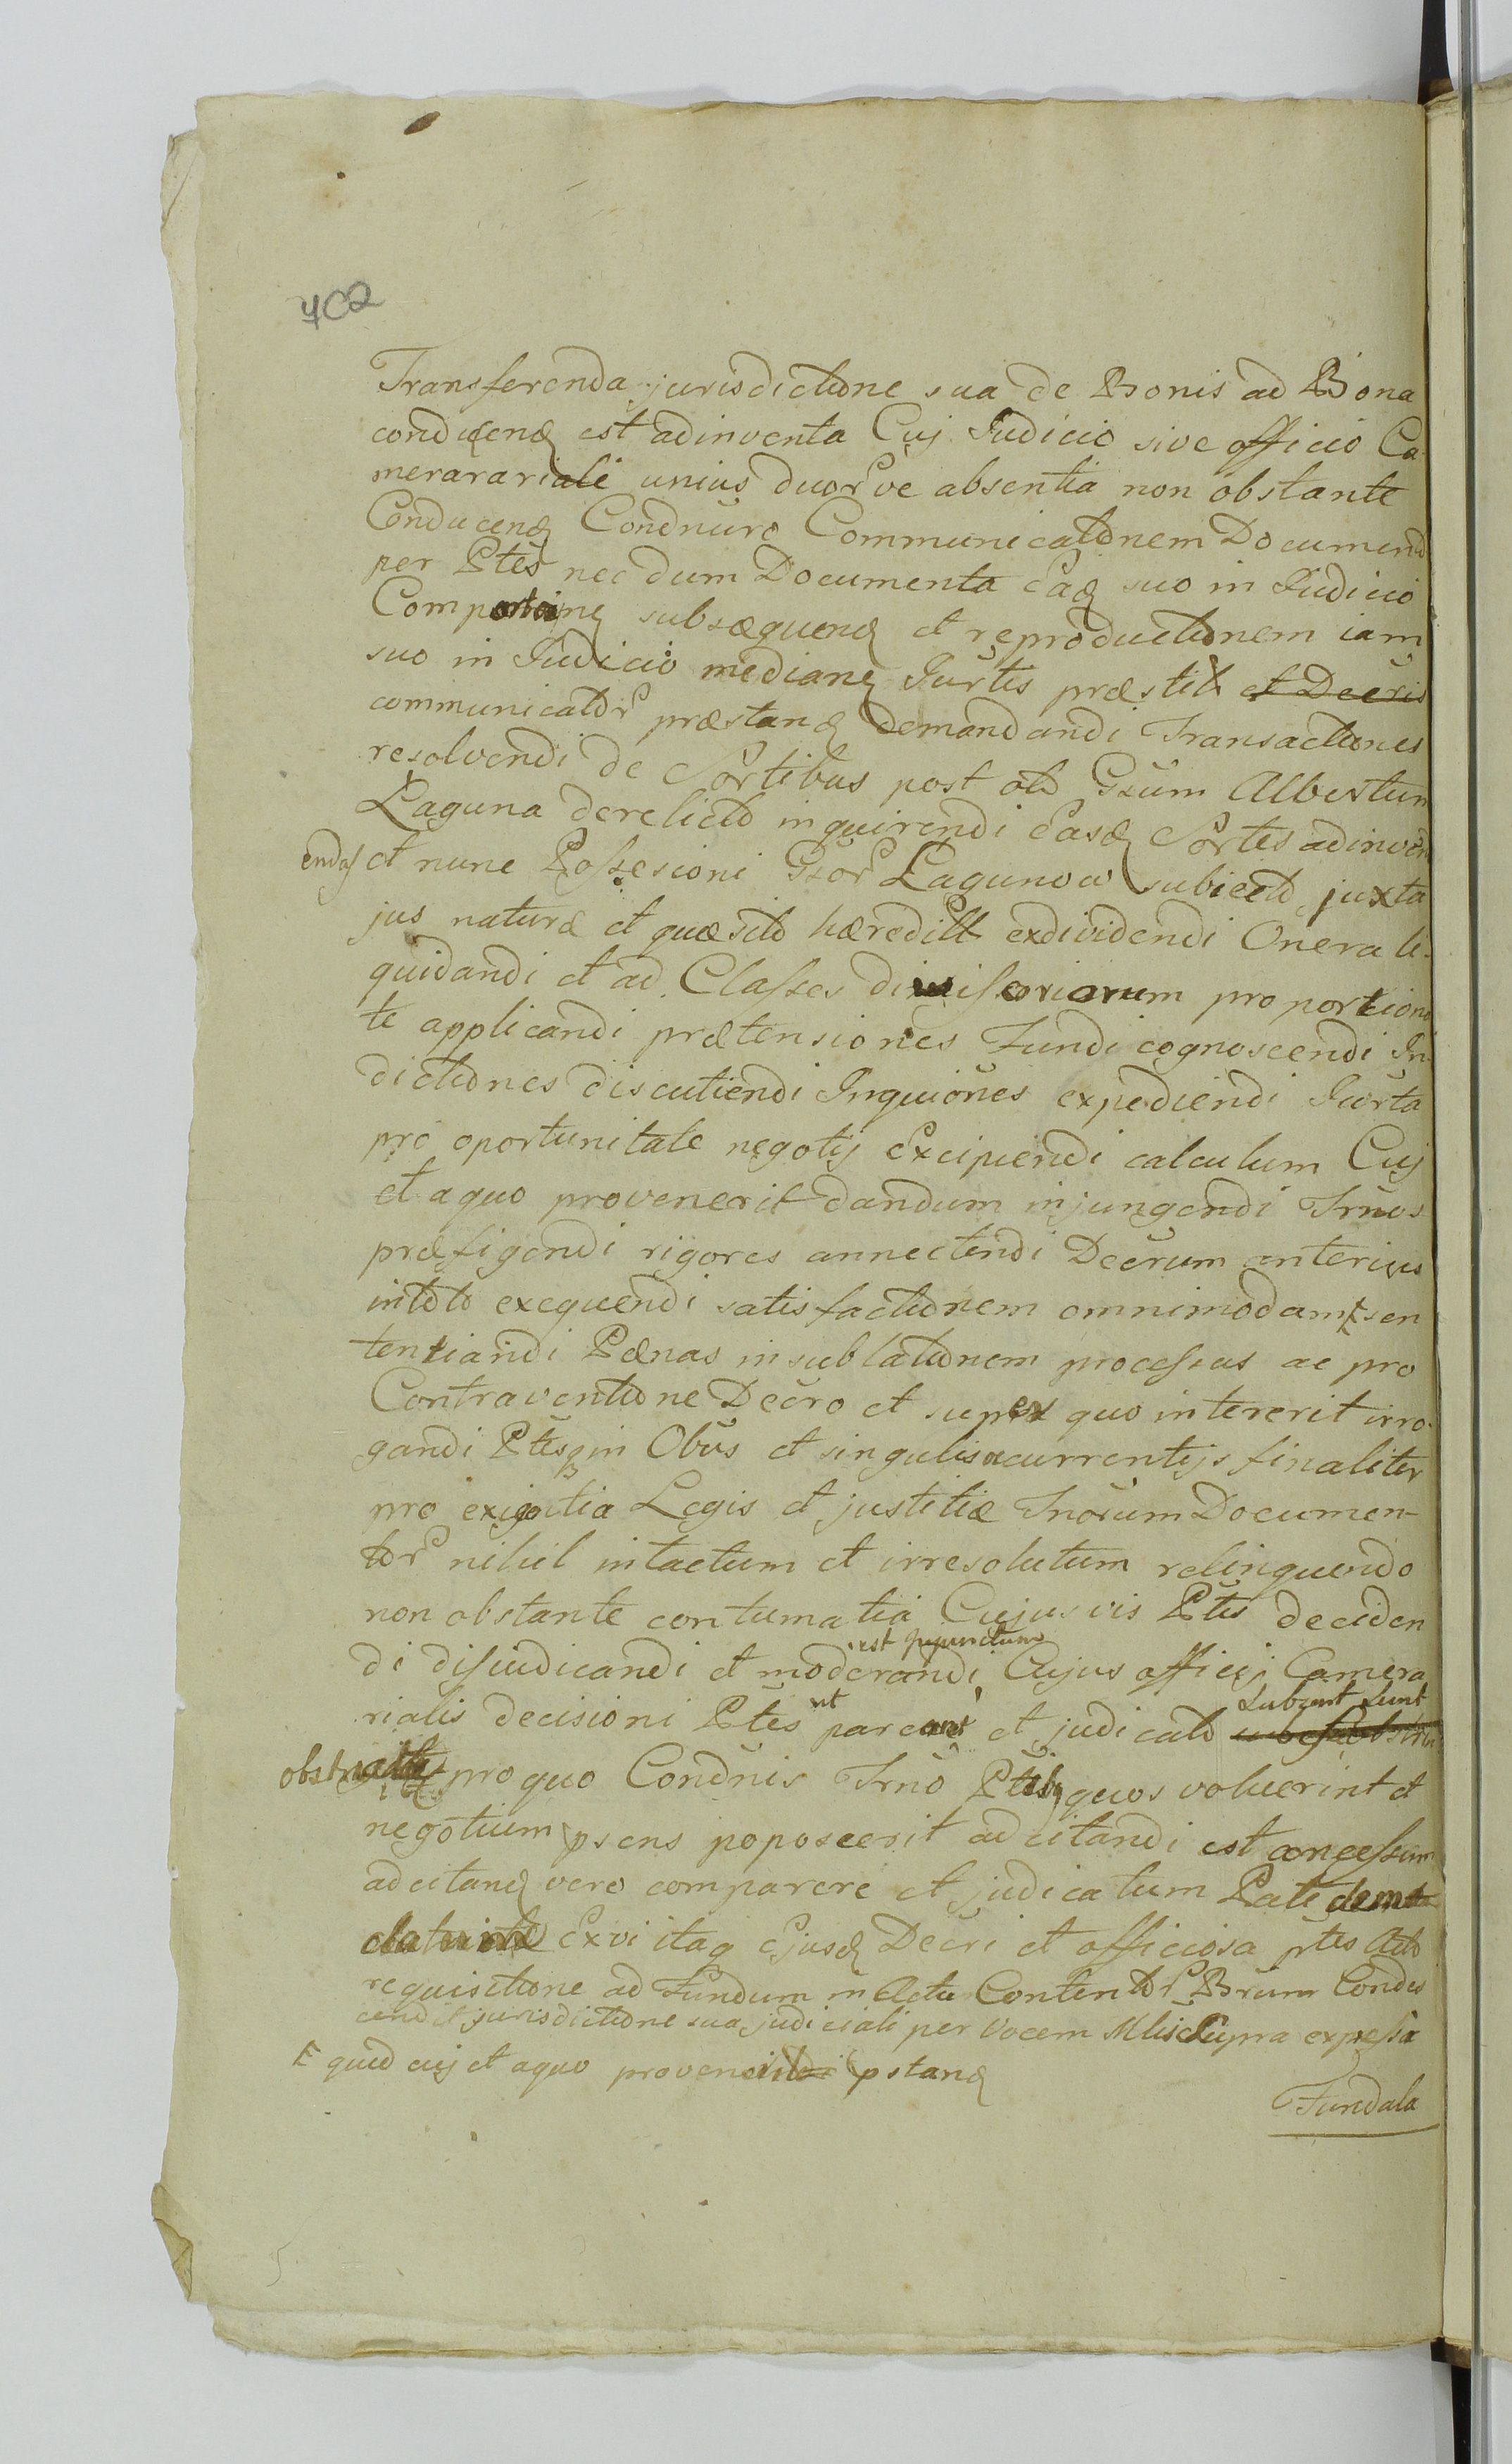 402
Transferenda jurisdictione sua de Bonis ad Bona
conducend est adinventa Cuj Judicio sive officio Ca
merarariali unius duor ve absentia non obstante
Conducend Condnũro Communicationem Documend
per Ptes nec dum Documenta Ead suo in Judicio
Comportan subsæquend et reproductionem iam
suo in Judicio median Jurtis præstit et Decris
communicator præstand demandandi Transactiones
resolvendi de Sortibus post olo Gsum Albertum
Laguna derelicto inquirendi Easd Sortes adinven
endas et nunc Possesioni Gsor Lagunow subiecto juxta
jus naturæ et quæsito hæreditt exdividendi Onera li-
quidandi et ad Classes divisoriarum proportiona
te applicandi prætensiones Fundi cognoscendi In
dictiones discutiendi Inquiones expediendi Jurta
pro oportunitate negotij Excipiendi calculum Cuj
et a quo provenerit dandum injungendi Trnos
præfigendi rigores annectendi Decrum anterius
in toto exequendi satisfactionem omnimodam sen
tentiandi Pænas in sublationem processus ac pro
Contraventione Decro et super quo intererit irro-
gandi Ptes in Obus et singulis occurrentijs finaliter
pro exigentia Legis et justitiæ Inorum Documen-
tor nihil intactum et irresolutum relinquendo
non obstante contumatia Cujusvis Ptis deciden
di dijudicandi et moderandi Cujus officij Camera
est injunctum
rialis decisioni Ptes ut pareant et judicato
subsint sunt
pro quo Condnis Trno Ptib quos voluerint et
negotium psens poposcerit adcitandi est concessum
adcitand vero comparere et judicatum Pati
Exvi itaq Ejusd Decri et officiosa ptis Acto
requisitione ad Fundum in Actu Contentor Brum Condes
cendit jurisdictione sua judiciali per Vocem Mlis Supra expressa
quid cuj et a quo provenerit pstand
Fundata